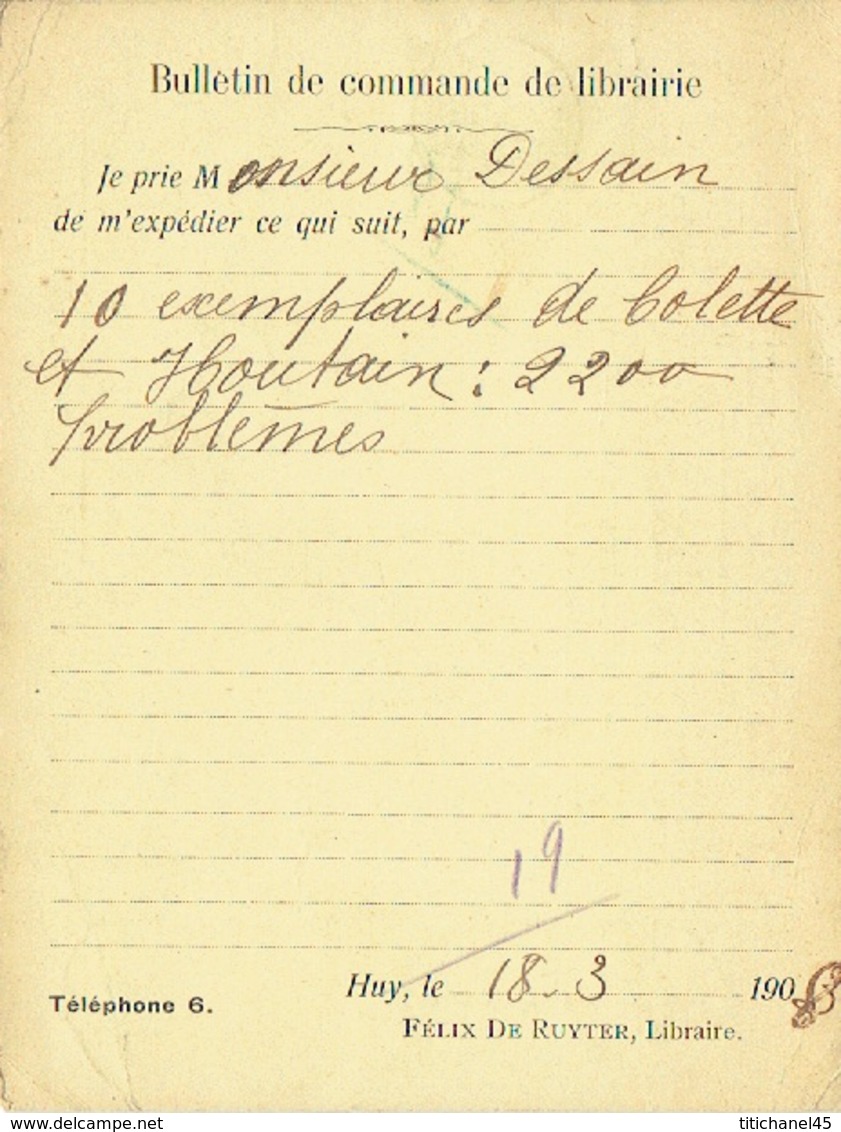 Bulletin de commande de librairie
Je prie Monsieur Dessain
de m'expédier ce qui suit, par
10 exemplaires de Colette
et Houtain : 2200
problèmes
19
Huy, le 18-3 1908
Téléphone 6.
FÉLIX DE RUYTER, Libraire.
delcampe.net
titichanel45